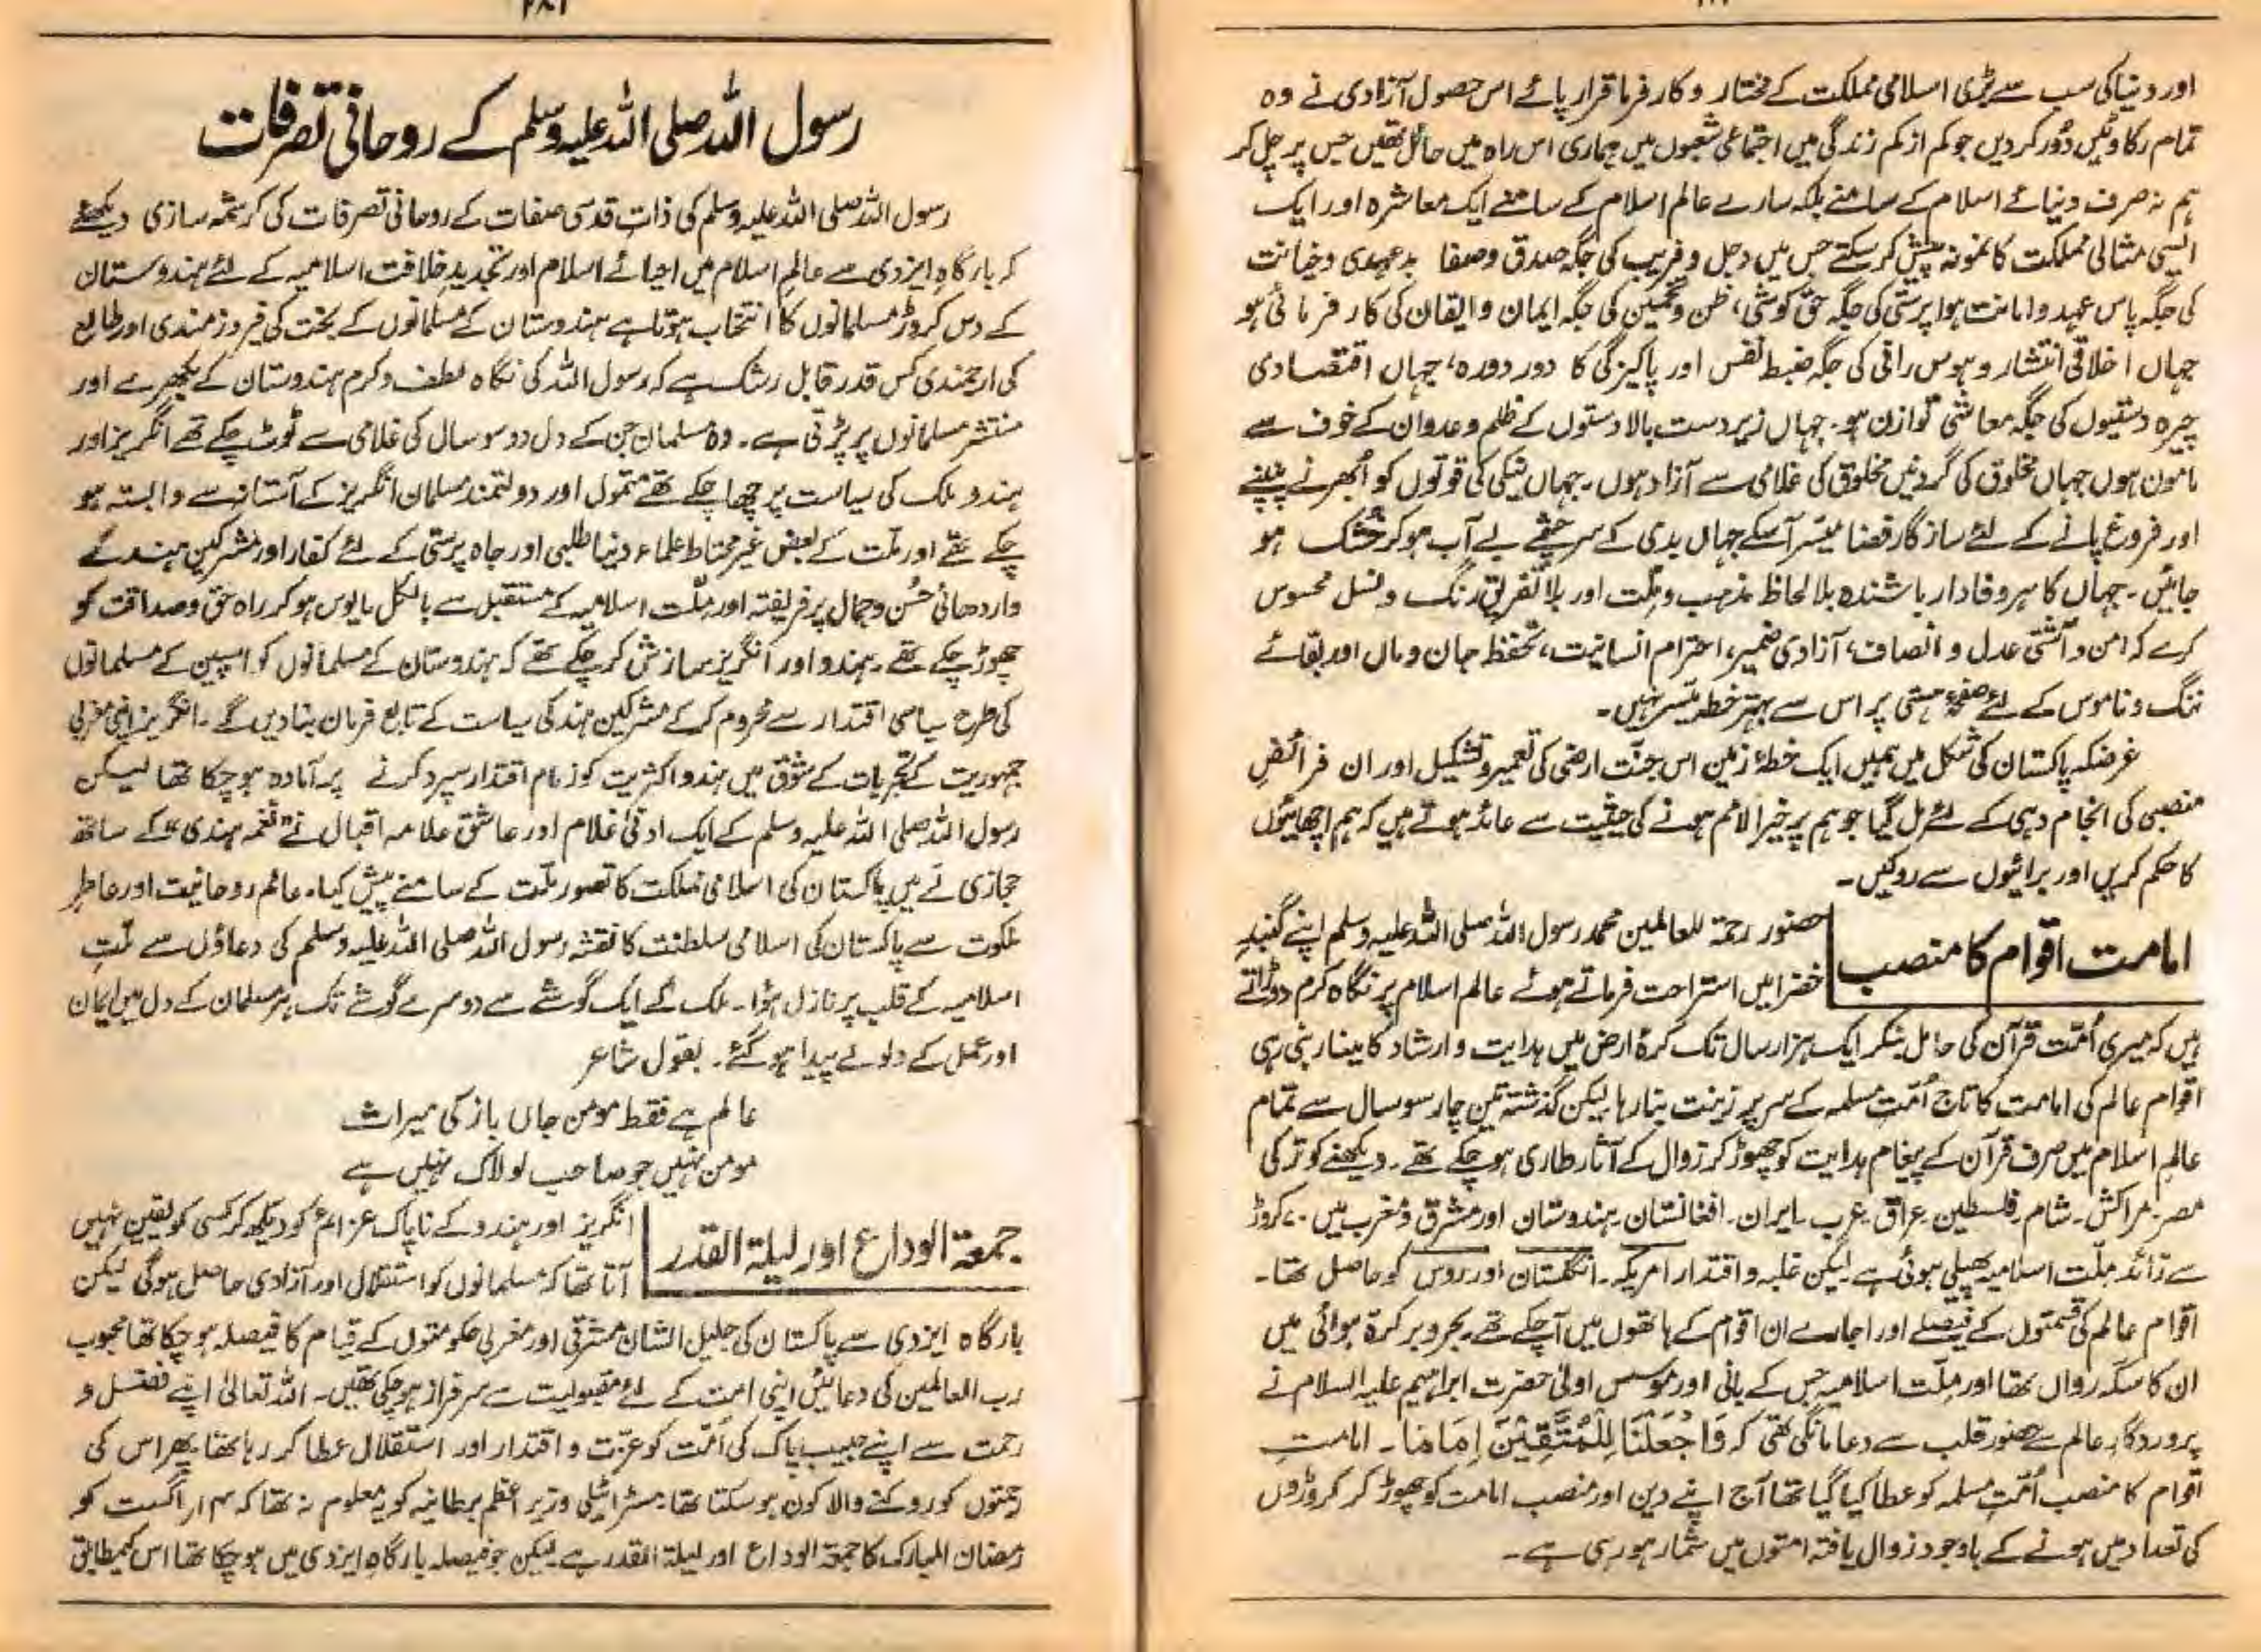 اور دنیا کی سب سے بڑی اسلامی مملکت کے مختار و کارفرما قرار پائے اس حصول آزادی نے وہ
تمام رکاوٹیں دُور کر دیں جو کم از کم زندگی میں اجتماعی شعبوں میں ہماری اس راہ میں حائل تھیں جس پر چل کر
ہم نہ صرف دنیائے اسلام کے سامنے بلکہ سارے عالم اسلام کے سامنے ایک معاشرہ اور ایک
ایسی مثالی مملکت کا نمونہ پیش کر سکتے جس میں دجل و فریب کی جگہ صدق و صفا بدعہدی و خیانت
کی جگہ پاس عہد و امانت ہوا پرستی کی جگہ حق کوشی، ظن و تخمین کی جگہ ایمان و ایقان کی کارفرمائی ہو
جہاں اخلاقی انتشار و ہوس رانی کی جگہ ضبط نفس اور پاکیزگی کا دور دورہ، جہاں اقتصادی
چیرہ دستیوں کی جگہ معاشی توازن ہو۔ جہاں زیردست بالادستوں کے ظلم و عدوان کے خوف سے
مامون ہوں جہاں مخلوق کی گردنیں مخلوق کی غلامی سے آزاد ہوں۔ جہاں نیکی کی قوتوں کو اُبھرنے پنپنے
اور فروغ پانے کے لئے سازگار فضا میسّر آسکے جہاں بدی کے سرچشمے بے آب ہو کر خُشک ہو
جائیں۔ جہاں کا ہر وفادار باشندہ بلا لحاظ مذہب و ملّت اور بلا تفریق رنگ و نسل محسوس
کرے کہ امن و آشتی عدل و انصاف، آزادی ضمیر، احترام انسانیت، تحفظ جان و مال اور بقائے
ننگ و ناموس کے لئے صفحۂ ہستی پر اس سے بہتر خطہ میّسر نہیں۔
غرضکہ پاکستان کی شکل میں ہمیں ایک خطۂ زمین اس جنّت ارضی کی تعمیر و تشکیل اور ان فرائضِ
منصبی کی انجام دہی کے لئے مل گیا جو ہم پر خیر الامم ہونے کی حیثیت سے عائد ہوتے ہیں کہ ہم اچھائیوں
کا حکم کریں اور برائیوں سے روکیں۔
امامت اقوام کا منصب
حضور رحمۃ للعالمین محمد رسول اللہ صلی اللہ علیہ وسلم اپنے گنبدِ
خضرا میں استراحت فرماتے ہوئے عالم اسلام پر نگاہ کرم دوڑاتے
ہیں کہ میری اُمّت قرآن کی حامل بنکر ایک ہزار سال تک کرۂ ارض میں ہدایت و ارشاد کا مینار بنی رہی
اقوام عالم کی امامت کا تاج اُمّت مسلمہ کے سر پر زینت بنا رہا لیکن گذشتہ تین چار سو سال سے تمام
عالم اسلام میں صرف قرآن کے پیغام ہدایت کو چھوڑ کر زوال کے آثار طاری ہو چکے تھے۔ دیکھنے کو ترکی
مصر۔ مراکش۔ شام۔ فلسطین۔ عراق۔ عرب۔ ایران۔ افغانستان۔ ہندوستان اور مشرق و مغرب میں ۷۰ کروڑ
سے زائد ملّت اسلامیہ پھیلی ہوئی ہے لیکن غلبہ و اقتدار امریکہ۔ انگلستان اور روس کو حاصل تھا۔
اقوام عالم کی قسمتوں کے فیصلے اور اجارے ان اقوام کے ہاتھوں میں آ چکے تھے۔ بحر و بر کرۂ ہوائی میں
ان کا سکّہ رواں تھا اور ملّت اسلامیہ جس کے بانی اور موسس اولیٰ حضرت ابراہیم علیہ السلام نے
پروردگار عالم سے حضور قلب سے دعا مانگی تھی کہ وَاجْعَلْنَا لِلْمُتَّقِیْنَ اِمَامًا۔ امامتِ
اقوام کا منصب اُمّتِ مسلمہ کو عطا کیا گیا تھا آج اپنے دین اور منصب امامت کو چھوڑ کر کروڑوں
کی تعداد میں ہونے کے باوجود زوال یافتہ امتوں میں شمار ہو رہی ہے۔
رسول اللہ صلی اللہ علیہ وسلم کے روحانی تصرفات
رسول اللہ صلی اللہ علیہ وسلم کی ذات قدسی صفات کے روحانی تصرفات کی کرشمہ سازی دیکھئے
کہ بارگاہِ ایزدی سے عالمِ اسلام میں احیائے اسلام اور تجدیدِ خلافت اسلامیہ کے لئے ہندوستان
کے دس کروڑ مسلمانوں کا انتخاب ہوتا ہے ہندوستان کے مسلمانوں کے بخت کی فیروزمندی اور طالع
کی ارجمندی کس قدر قابل رشک ہے کہ رسول اللہ کی نگاہ لطف و کرم ہندوستان کے بکھرے اور
منتشر مسلمانوں پر پڑتی ہے۔ وہ مسلمان جن کے دل دو سو سال کی غلامی سے ٹوٹ چکے تھے انگریز اور
ہندو ملک کی سیاست پر چھا چکے تھے متمول اور دولتمند مسلمان انگریز کے آستانہ سے وابستہ ہو
چکے تھے اور ملّت کے بعض غیر محتاط علماء دنیا طلبی اور جاہ پرستی کے لئے کفار اور مشرکین ہند کے
واردھائی حُسن و جمال پر فریفتہ اور ملّت اسلامیہ کے مستقبل سے بالکل مایوس ہو کر راہ حق و صداقت کو
چھوڑ چکے تھے۔ ہندو اور انگریز سازش کر چکے تھے کہ ہندوستان کے مسلمانوں کو اسپین کے مسلمانوں
کی طرح سیاسی اقتدار سے محروم کر کے مشرکین ہند کی سیاست کے تابع فرمان بنا دیں گے۔ انگریز اپنی مغربی
جمہوریت کے تجربات کے شوق میں ہندو اکثریت کو زمام اقتدار سپرد کرنے پر آمادہ ہو چکا تھا لیکن
رسول اللہ صلی اللہ علیہ وسلم کے ایک ادنیٰ غلام اور عاشق علامہ اقبال نے "نغمہ ہندی" کے ساتھ
حجازی لَے میں پاکستان کی اسلامی مملکت کا تصور ملّت کے سامنے پیش کیا۔ عالم روحانیت اور
ملکوت سے پاکستان کی اسلامی سلطنت کا نقشہ رسول اللہ صلی اللہ علیہ وسلم کی دعاؤں سے ملّتِ
اسلامیہ کے قلب پر نازل ہؤا۔ ملک کے ایک گوشے سے دوسرے گوشے تک ہر مسلمان کے دل میں ایمان
اور عمل کے ولولے پیدا ہو گئے۔ بقول شاعر
عالم ہے فقط مومن جاں باز کی میراث
مومن نہیں جو صاحب لولاک نہیں ہے
جمعۃ الوداع اور لیلۃ القدر
انگریز اور ہندو کے ناپاک عزائم کو دیکھ کر کسی کو یقین نہیں
آتا تھا کہ مسلمانوں کو استقلال اور آزادی حاصل ہوگی لیکن
بارگاہ ایزدی سے پاکستان کی جلیل الشان مشرقی اور مغربی حکومتوں کے قیام کا فیصلہ ہو چکا تھا محبوب
رب العالمین کی دعائیں اپنی امت کے لئے مقبولیت سے سرفراز ہو چکی تھیں۔ اللہ تعالیٰ اپنے فضل و
رحمت سے اپنے حبیب پاک کی اُمّت کو عزّت و اقتدار اور استقلال عطا کر رہا تھا پھر اس کی
رحمتوں کو روکنے والا کون ہو سکتا تھا۔ مسٹر اٹیلی وزیر اعظم برطانیہ کو یہ معلوم نہ تھا کہ ۱۴ اگست کو
رمضان المبارک کا جمعۃ الوداع اور لیلۃ القدر ہے۔ لیکن جو فیصلہ بارگاہِ ایزدی میں ہو چکا تھا اس کے مطابق